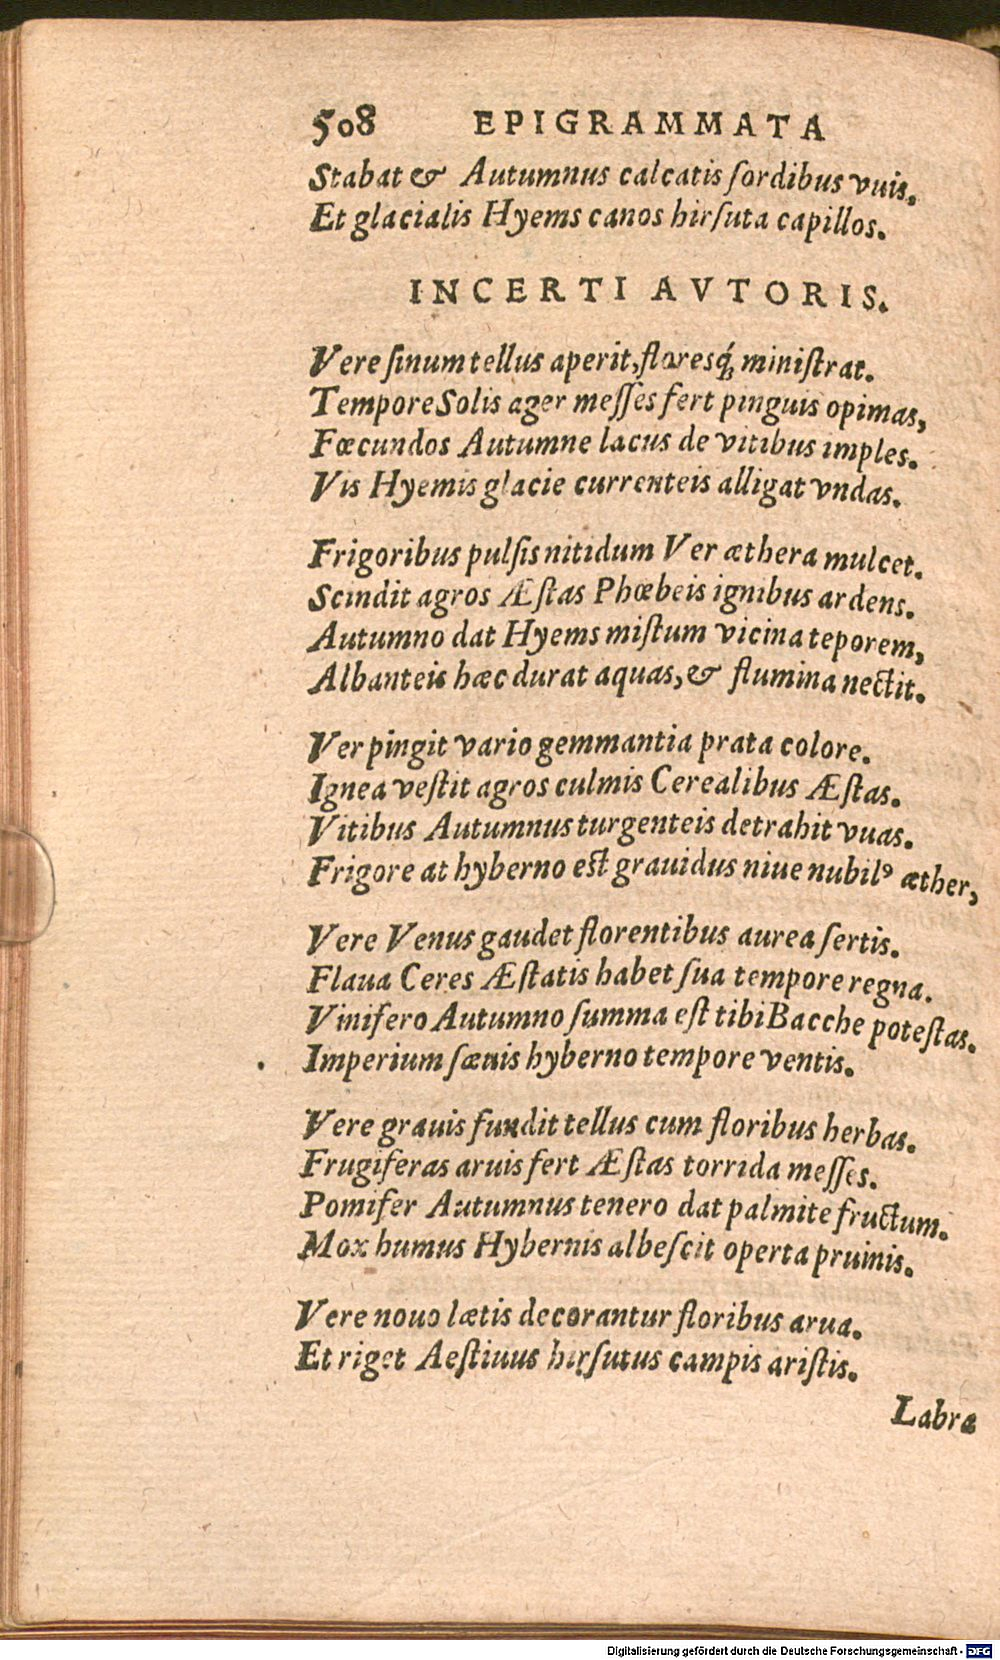 508 EPIGRAMMATA
Stabat & Autumnus calcatis ſordibus vuis,
Et glacialis Hyems canos hirſuta capillos.
INCERTI AVTORIS.
Vere ſinum tellus aperit, floresq́ꝫ miniſtrat.
Tempore Solis ager meſſes fert pinguis opimas,
Fœcundos Autumne lacus de vitibus imples.
Vis Hyemis glacie currenteis alligat vndas.
Frigoribus pulſis nitidum Ver æthera mulcet.
Scindit agros Æſtas Phœbeis ignibus ardens.
Autumno dat Hyems miſtum vicina teporem,
Albanteis hæc durat aquas, & flumina nectit.
Ver pingit vario gemmantia prata colore.
Ignea veſtit agros culmis Cerealibus Æſtas.
Vitibus Autumnus turgenteis detrahit vuas.
Frigore at hyberno eſt grauidus niue nubilꝰ æther,
Vere Venus gaudet florentibus aurea ſertis.
Flaua Ceres Æſtatis habet ſua tempore regna.
Vinifero Autumno ſumma eſt tibi Bacche poteſtas.
Imperium ſæuis hyberno tempore ventis.
Vere grauis fundit tellus cum floribus herbas.
Frugiferas aruis fert Æſtas torrida meſſes.
Pomifer Autumnus tenero dat palmite fructum.
Mox humus Hybernis albeſcit operta pruinis.
Vere nouo lætis decorantur floribus arua.
Et riget Aeſtiuus hirſutus campis ariſtis.
Labra
Digitalisierung gefördert durch die Deutsche Forschungsgemeinschaft - DFG